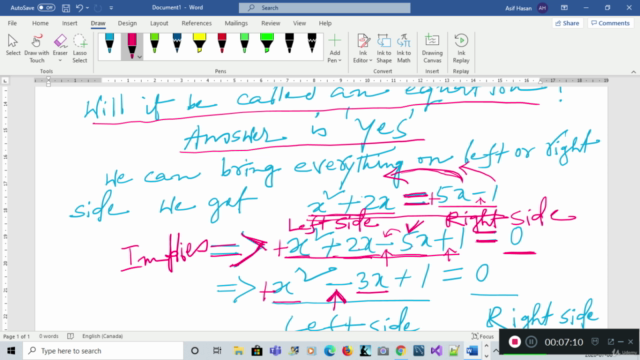 AutoSave Off Document1 - Word Search Asif Hasan AH
File Home Insert Draw Design Layout References Mailings Review View Help Share Comments
Select Draw with Touch Eraser Lasso Select Add Pen Ink Editor Ink to Shape Ink to Math Drawing Canvas Ink Replay
Tools Pens Convert Insert Replay
Will it be called an equation?
Answer is 'Yes'
We can bring everything on left or right
side we get x² + 2x = +5x - 1
Left side Right side
Implies => +x² + 2x - 5x + 1 = 0
=> +x² - 3x + 1 = 0
Left side Right side
Page 1 of 1 0 words English (Canada) Focus
Type here to search
00:07:10